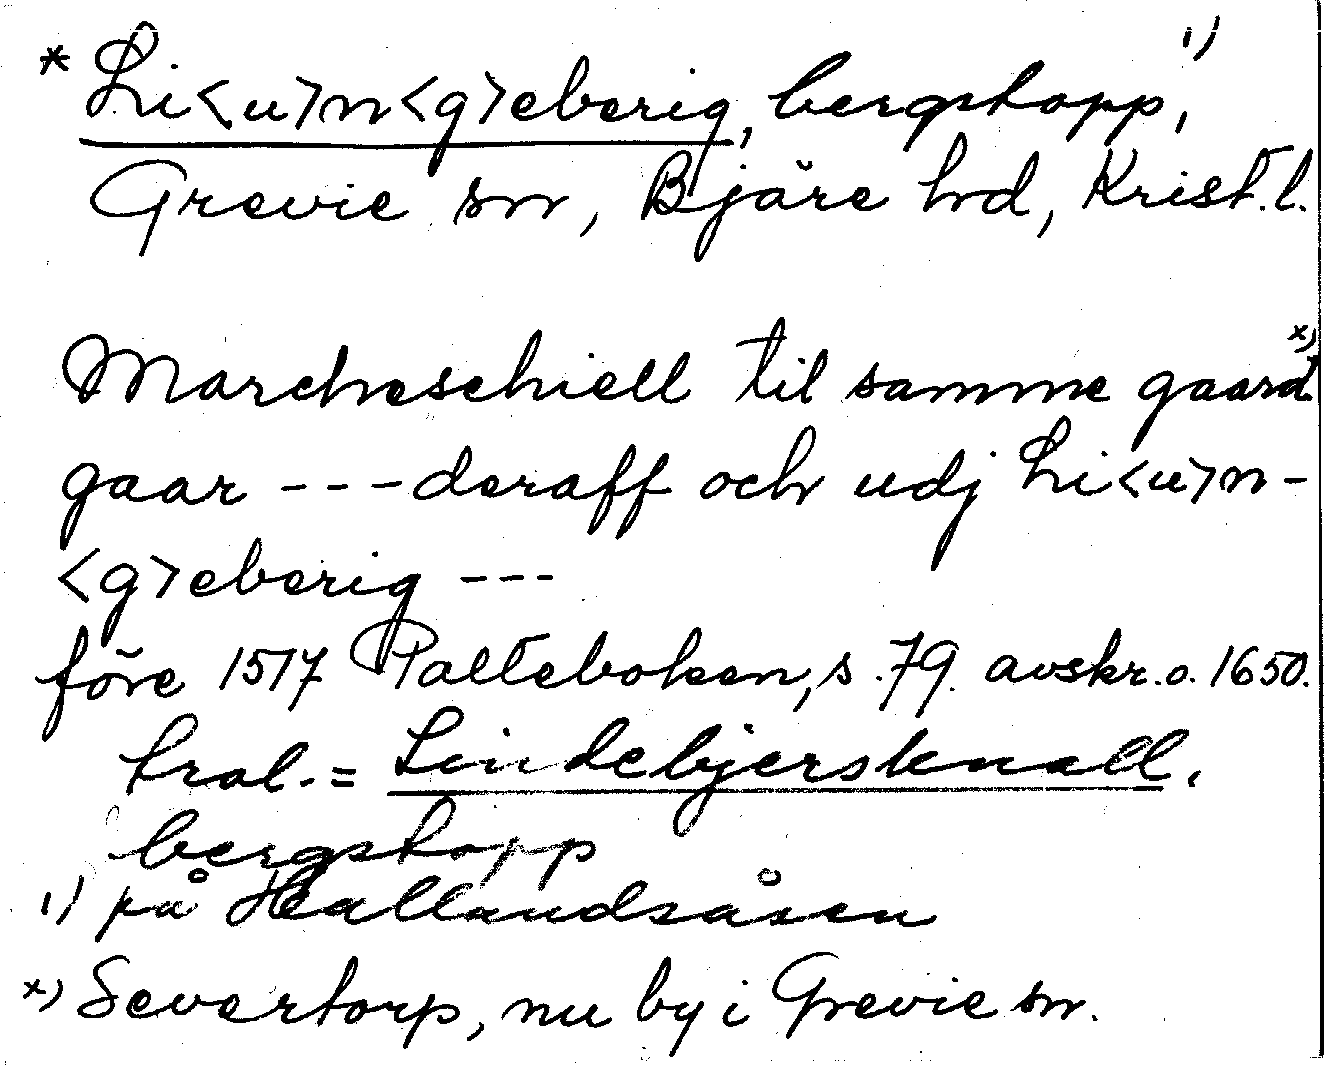 * Li<u>n<g>eberig, bergstopp, 1)
Grevie sn, Bjäre hd, Krist. l.
Marcheschiell til samme gaard x)
gaar --- deraff och udj Li<u>n-
<g>eberig ---
före 1517 Palteboken, s. 79. avskr. o. 1650.
trol. = Lindebjersknall,
bergstopp
1) på Hallandsåsen
x) Severtorp, nu by i Grevie sn.